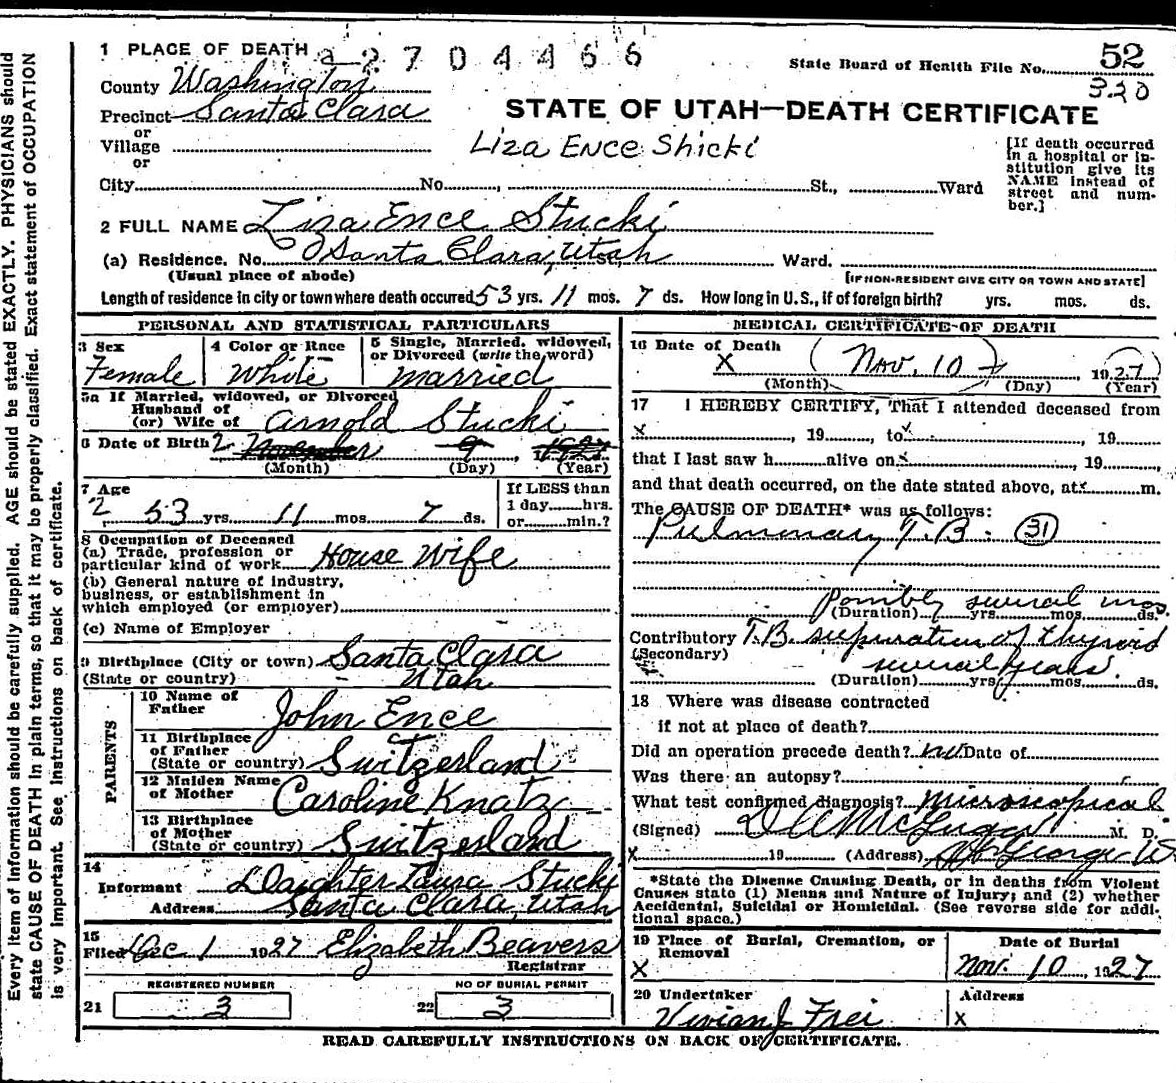 Every item of information should be carefully supplied. AGE should be stated EXACTLY. PHYSICIANS should
state CAUSE OF DEATH in plain terms, so that it may be properly classified. Exact statement of OCCUPATION
is very important. See instructions on back of certificate.
1 PLACE OF DEATH 2704466
State Board of Health File No. 52
320
County Washington
Precinct Santa Clara
or
Village
or
STATE OF UTAH—DEATH CERTIFICATE
Liza Ence Shicki
[If death occurred
in a hospital or in-
stitution give its
NAME instead of
street and num-
ber.]
City No. , St., Ward
2 FULL NAME Liza Ence Stucki
(a) Residence. No. Santa Clara, Utah Ward.
(Usual place of abode) [IF NON-RESIDENT GIVE CITY OR TOWN AND STATE]
Length of residence in city or town where death occured 53 yrs. 11 mos. 7 ds. How long in U.S., if of foreign birth? yrs. mos. ds.
PERSONAL AND STATISTICAL PARTICULARS
3 Sex
Female
4 Color or Race
White
5 Single, Married, widowed,
or Divorced (write the word)
married
5a If Married, widowed, or Divorced
Husband of
(or) Wife of Arnold Stucki
6 Date of Birth 2 November 9, 1927
(Month) (Day) (Year)
7 Age
2 53 yrs 11 mos. 7 ds.
If LESS than
1 day hrs.
or min.?
8 Occupation of Deceased
(a) Trade, profession or
particular kind of work House Wife
(b) General nature of industry,
business, or establishment in
which employed (or employer)
(c) Name of Employer
9 Birthplace (City or town) Santa Clara
(State or country) Utah
PARENTS
10 Name of
Father John Ence
11 Birthplace
of Father
(State or country) Switzerland
12 Maiden Name
of Mother Caroline Knatz
13 Birthplace
of Mother
(State or country) Switzerland
14
Informant Daighter Laura Stucki
Address Santa Clara, Utah
15
Filed Dec 1 1927 Elizabeth Beavers
Registrar
REGISTERED NUMBER
21 3
NO OF BURIAL PERMIT
22 3
MEDICAL CERTIFICATE OF DEATH
16 Date of Death
X Nov. 10, 1927
(Month) (Day) (Year)
17 I HEREBY CERTIFY, That I attended deceased from
x , 19 to , 19
that I last saw h alive on x , 19 ,
and that death occurred, on the date stated above, at m.
The CAUSE OF DEATH* was as follows:
Pulmonary T.B. 31
Possibly several mos.
(Duration) yrs. mos. ds.
Contributory T.B. supuration of thyroid
(Secondary) several years.
(Duration) yrs mos. ds.
18 Where was disease contracted
if not at place of death?
Did an operation precede death? no Date of
Was there an autopsy?
What test confirmed diagnosis? microscopical
(Signed) M. D.
x 19 (Address) St George Ut
*State the Disease Causing Death, or in deaths from Violent
Causes state (1) Means and Nature of Injury; and (2) whether
Accidental, Suicidal or Homicidal. (See reverse side for addi-
tional space.)
19 Place of Burial, Cremation, or
Removal
X
Date of Burial
Nov. 10, 1927
20 Undertaker
Vivian J Frei
Address
X
READ CAREFULLY INSTRUCTIONS ON BACK OF CERTIFICATE.